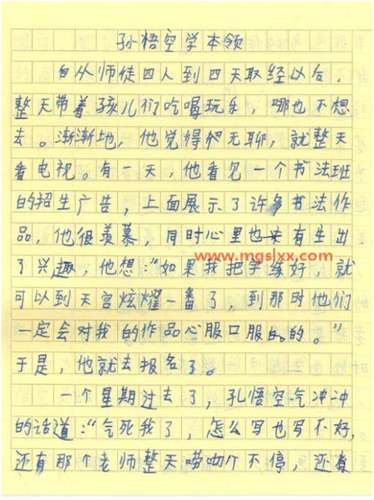 孙悟空学本领
自从师徒四人到四天取经以后，
整天带着孩儿们吃喝玩乐，哪也不想
去。渐渐地，他觉得很无聊，就整天
看电视。有一天，他看见一个书法班
的招生广告，上面展示了许多书法作
品，他很羡慕，同时心里也有生出
www.mgslxx.com
了兴趣，他想："如果我把字练好，就
可以到天宫炫耀一番了，到那时他们
一定会对我的作品心服口服的。"
于是，他就去报名了。
一个星期过去了，孔悟空气冲冲
的话道："气死我了，怎么写也写不好，
还有那个老师整天唠叨个不停，还有